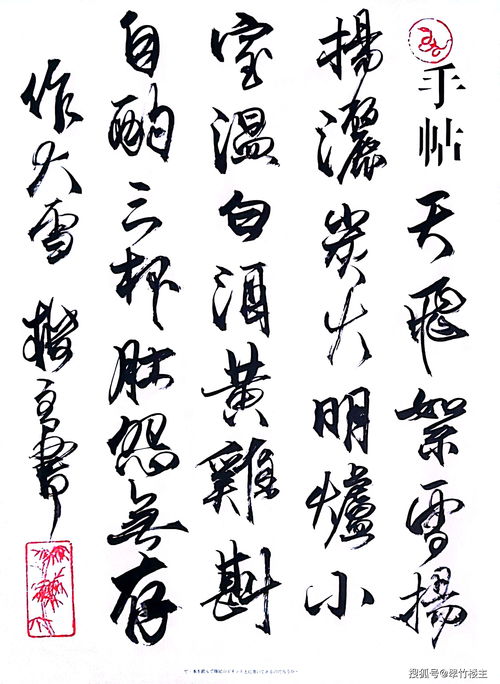 手帖 天飛絮雪揚
揚灑炭火明爐小
室溫白酒黃雞斟
自酌三杯肚怨無存
作大雪
搜狐号@翠竹楼主